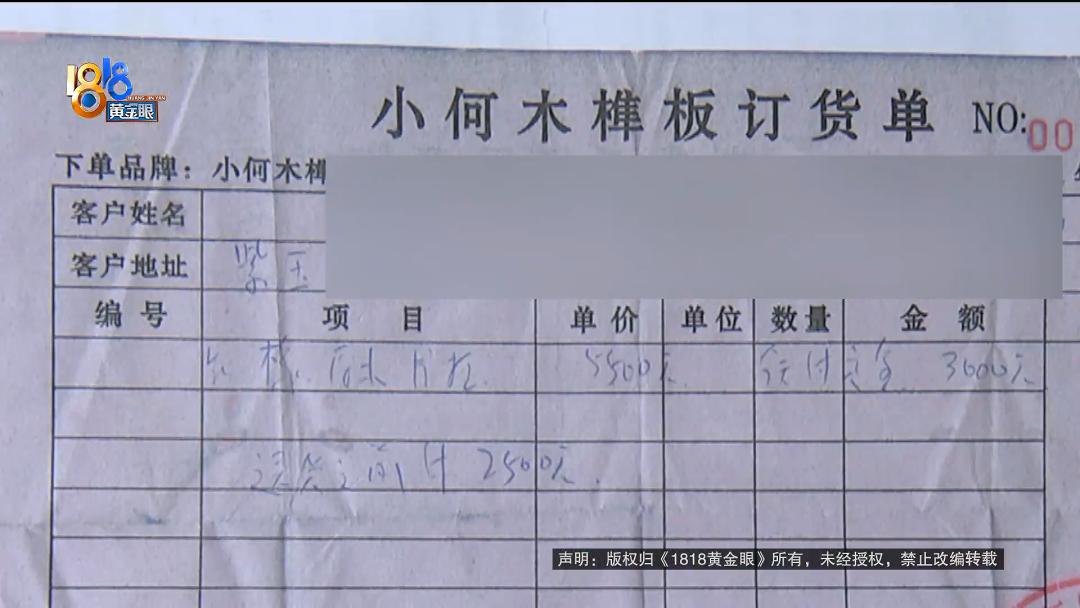 1818
HUANG JIN YAN
黄金眼
小何木榫板订货单 NO:00
下单品牌：小何木榫
客户姓名
客户地址 紫玉
编号 项目 单价 单位 数量 金额
5500元 付定金 3000元
送货之前付 2500元
声明：版权归《1818黄金眼》所有，未经授权，禁止改编转载